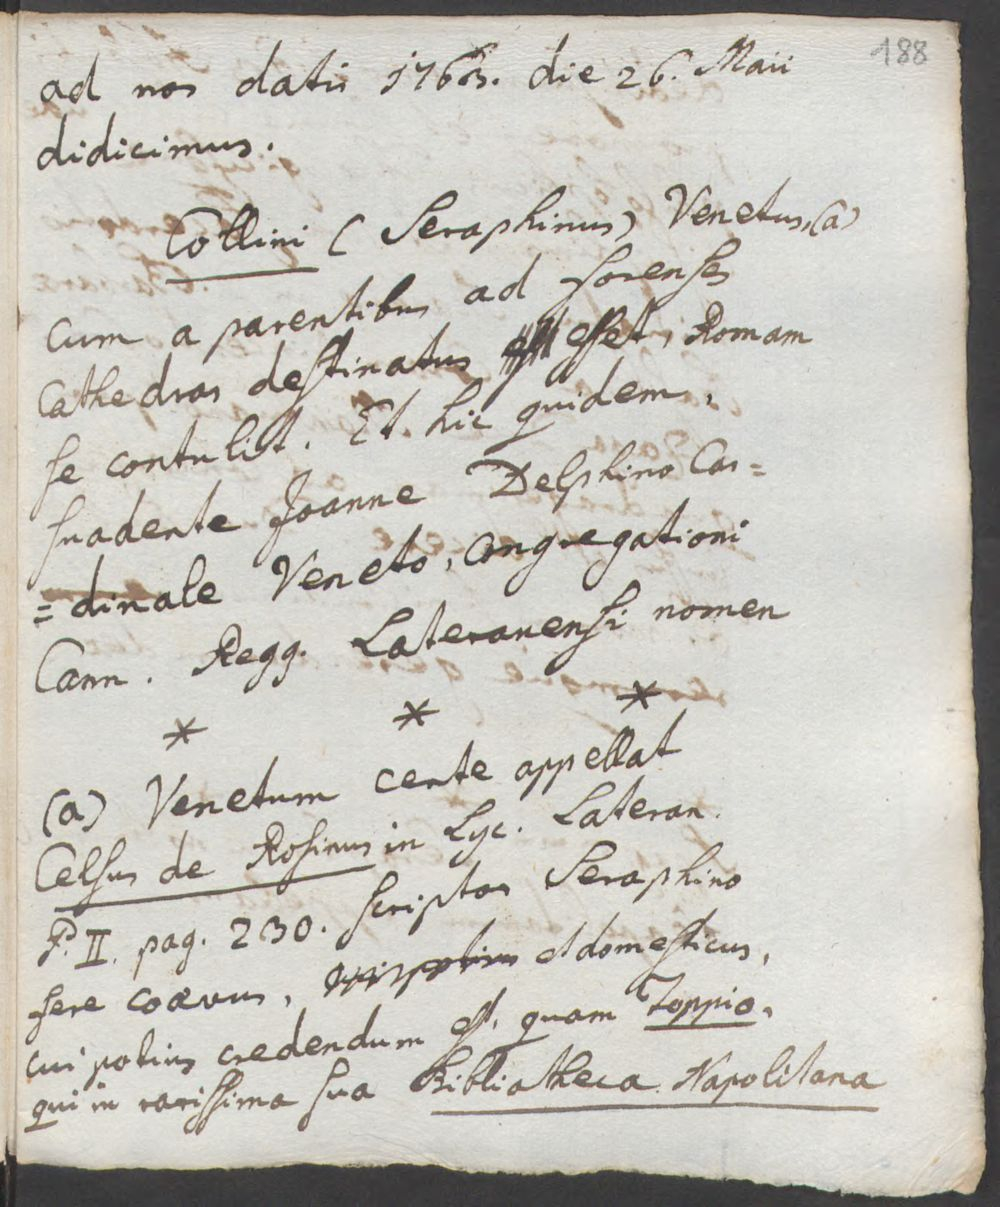 188
ad nos datis 1763. die 26. Maii
didicimus.
Collini (Seraphinus) Venetus, (a)
cum a parentibus ad forenses
Cathedras destinatus esset, Romam
se contulit. Et hic quidem,
suadente Joanne Delphino Car=
=dinale Veneto, congregationi
Cann. Regg. Lateranensi nomen
* * *
(a) Venetum certe appellat
Celsus de Rosinus in Lyc. Lateran.
P. II. pag. 230. scriptor Seraphino
fere coævus, et domesticus,
cui potius credendum est, quam Toppio,
qui in rarissima sua Bibliatheca Napolitana